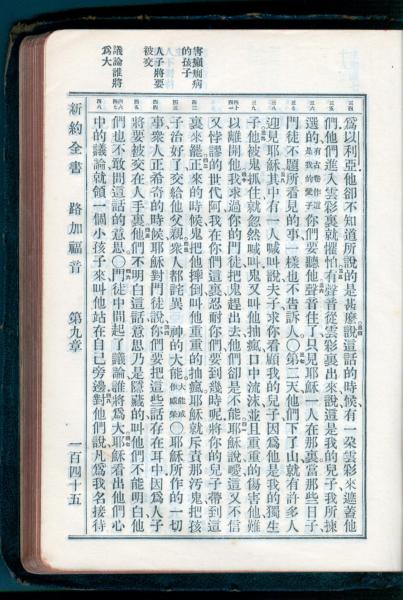 害癲癇病
的孩子
人子將要
被交
議論誰將
爲大
爲以利亞他卻不知道所說的是甚麽說這話的時候有一朵雲彩來遮蓋他
們他們進入雲彩裏就懼怕有聲音從雲彩裏出來說這是我的兒子我所揀
選的有古卷作這是我的愛子你們要聽他聲音住了只見耶穌一人在那裏當那些日子
門徒不題所看見的事一樣也不告訴人〇第二天他們下了山就有許多人
迎見耶穌其中有一人喊叫說夫子求你看顧我的兒子因爲他是我的獨生
子他被鬼抓住就忽然喊叫鬼又叫他抽瘋口中流沫並且重重的傷害他難
以離開他我求過你的門徒把鬼趕出去他們卻是不能耶穌說噯這又不信
又悖謬的世代阿我在你們這裏忍耐你們要到幾時呢將你的兒子帶到這
裏來罷正來的時候鬼把他摔倒叫他重重的抽瘋耶穌就斥責那污鬼把孩
子治好了交給他父親衆人都詫異 神的大能大能或作威榮〇耶穌所作的一切
事衆人正希奇的時候耶穌對門徒說你們要把這些話存在耳中因爲人子
將要被交在人手裏他們不明白這話意思乃是隱藏的叫他們不能明白他
們也不敢問這話的意思〇門徒中間起了議論誰將爲大耶穌看出他們心
中的議論就領一個小孩子來叫他站在自己旁邊對他們說凡爲我名接待
新約全書 路加福音 第九章 一百四十五